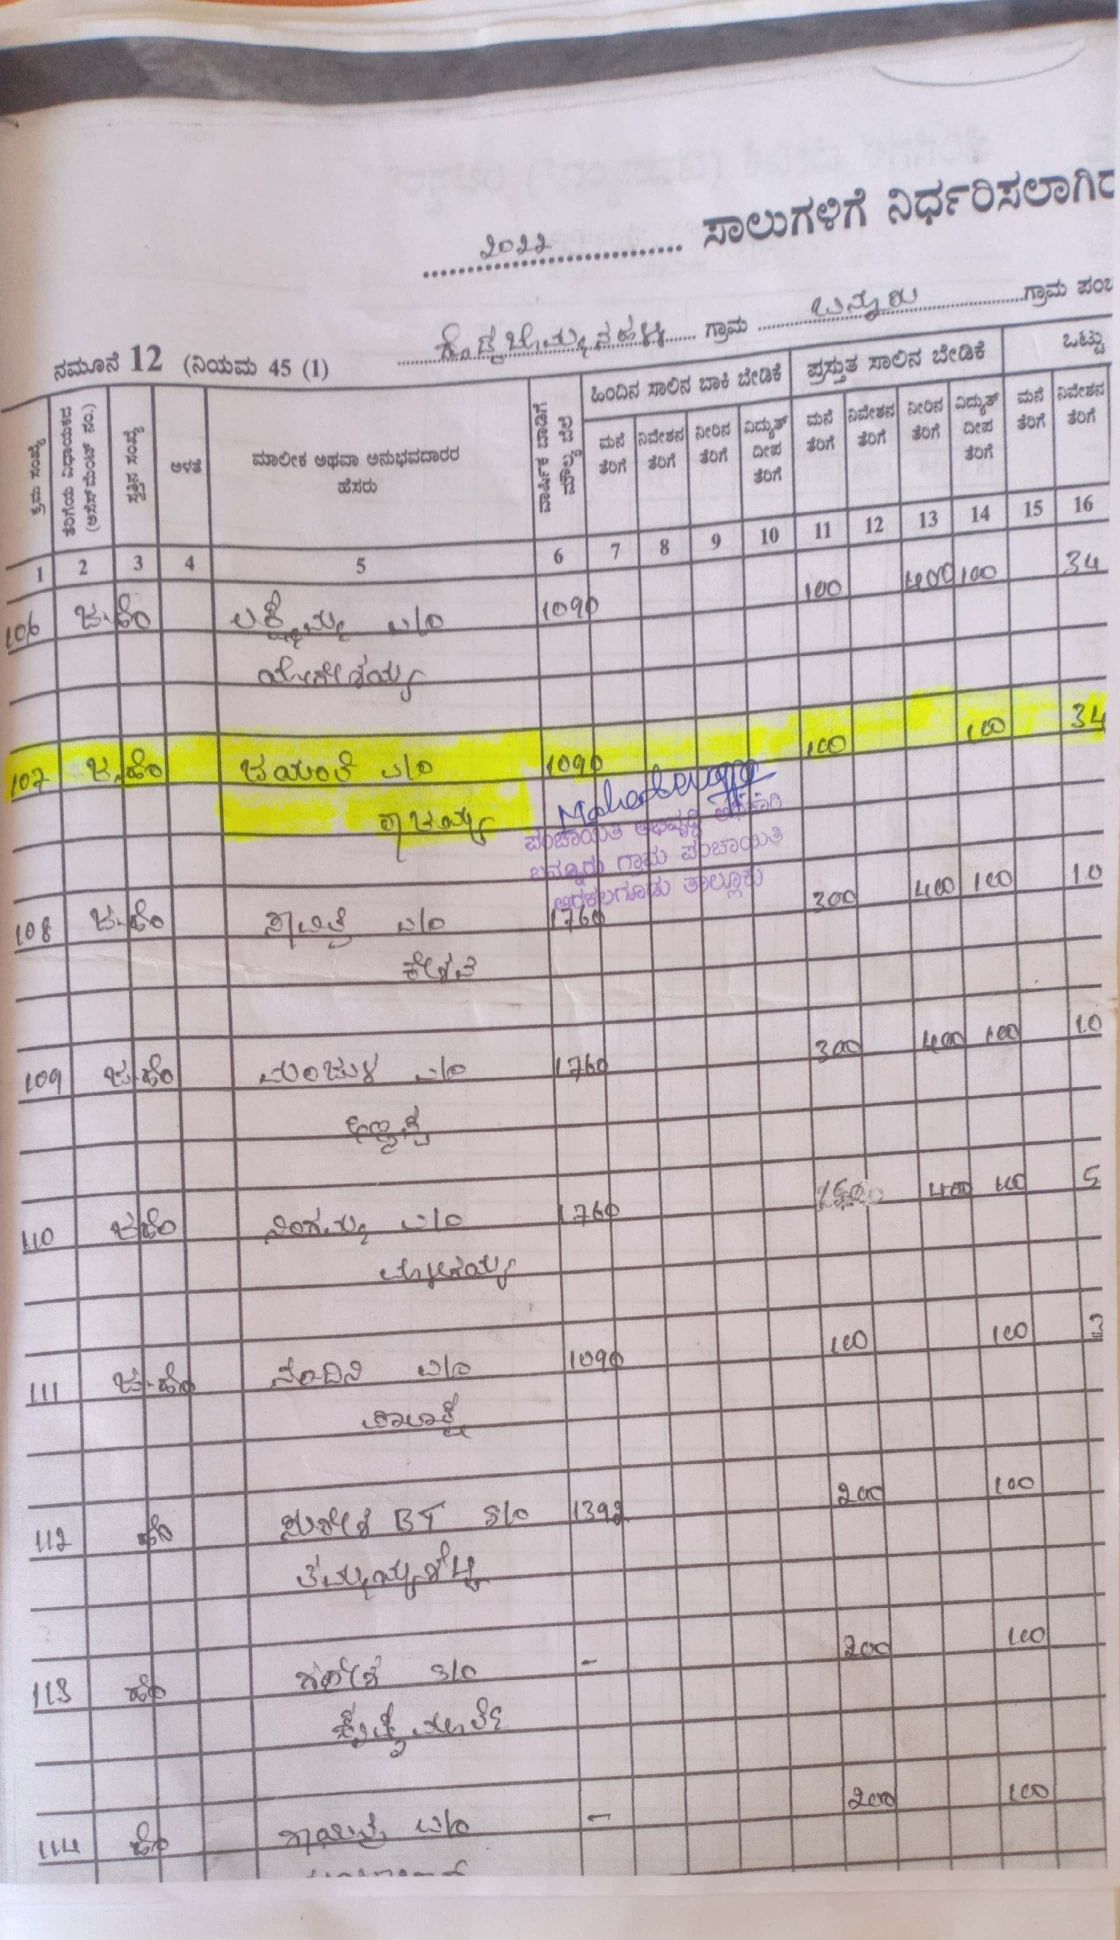 2022 ಸಾಲುಗಳಿಗೆ ನಿರ್ಧರಿಸಲಾಗಿರ
ನಮೂನೆ 12 (ನಿಯಮ 45 (1) ಗ್ರಾಮ ಬನ್ನೂರು ಗ್ರಾಮ ಪಂಚ
ಕ್ರಮ ಸಂಖ್ಯೆ
ತೆರಿಗೆಯ ವಿಧಾಯಕದ (ಅಸೆಸ್‌ಮೆಂಟ್ ನಂ.)
ಸ್ವತ್ತಿನ ಸಂಖ್ಯೆ
ಅಳತೆ
ಮಾಲೀಕ ಅಥವಾ ಅನುಭವದಾರರ
ಹೆಸರು
ವಾರ್ಷಿಕ ಬಾಡಿಗೆ ಮೌಲ್ಯ ಬೆಲೆ
ಹಿಂದಿನ ಸಾಲಿನ ಬಾಕಿ ಬೇಡಿಕೆ ಪ್ರಸ್ತುತ ಸಾಲಿನ ಬೇಡಿಕೆ ಒಟ್ಟು
ಮನೆ ತೆರಿಗೆ ನಿವೇಶನ ತೆರಿಗೆ ನೀರಿನ ತೆರಿಗೆ ವಿದ್ಯುತ್ ದೀಪ ತೆರಿಗೆ ಮನೆ ತೆರಿಗೆ ನಿವೇಶನ ತೆರಿಗೆ ನೀರಿನ ತೆರಿಗೆ ವಿದ್ಯುತ್ ದೀಪ ತೆರಿಗೆ ಮನೆ ತೆರಿಗೆ ನಿವೇಶನ ತೆರಿಗೆ
1 2 3 4 5 6 7 8 9 10 11 12 13 14 15 16
106 ಜ.ಹೊ ಲಕ್ಷ್ಮಮ್ಮ W/O 1090 100 400 100 34
107 ಜ.ಹೊ ಜಯಂತಿ W/O 1090 100 100 34
ರಾಜಯ್ಯ
ಪಂಚಾಯಿತಿ ಅಭಿವೃದ್ಧಿ ಅಧಿಕಾರಿ
ಬನ್ನೂರು ಗ್ರಾಮ ಪಂಚಾಯಿತಿ
ಅರಕಲಗೂಡು ತಾಲ್ಲೂಕು
108 ಜ.ಹೊ ಸಾವಿತ್ರಿ W/O 1760 300 400 100 10
ಕೇಶವ
109 ಜ.ಹೊ ಮಂಜುಳ W/O 1760 300 400 100 10
110 ಜ.ಹೊ ನಿಂಗಮ್ಮ W/O 1760 400 100 5
111 ಜ.ಹೊ ನಂದಿನಿ W/O 1090 100 100 3
112 ಹೊ ಸುರೇಶ BT S/O 1392 200 100
ತಿಮ್ಮಯ್ಯಶೆಟ್ಟಿ
113 ಹೊ ಗಣೇಶ S/O - 200 100
114 ಹೊ ಗಾಯಿತ್ರಿ W/O - 200 100